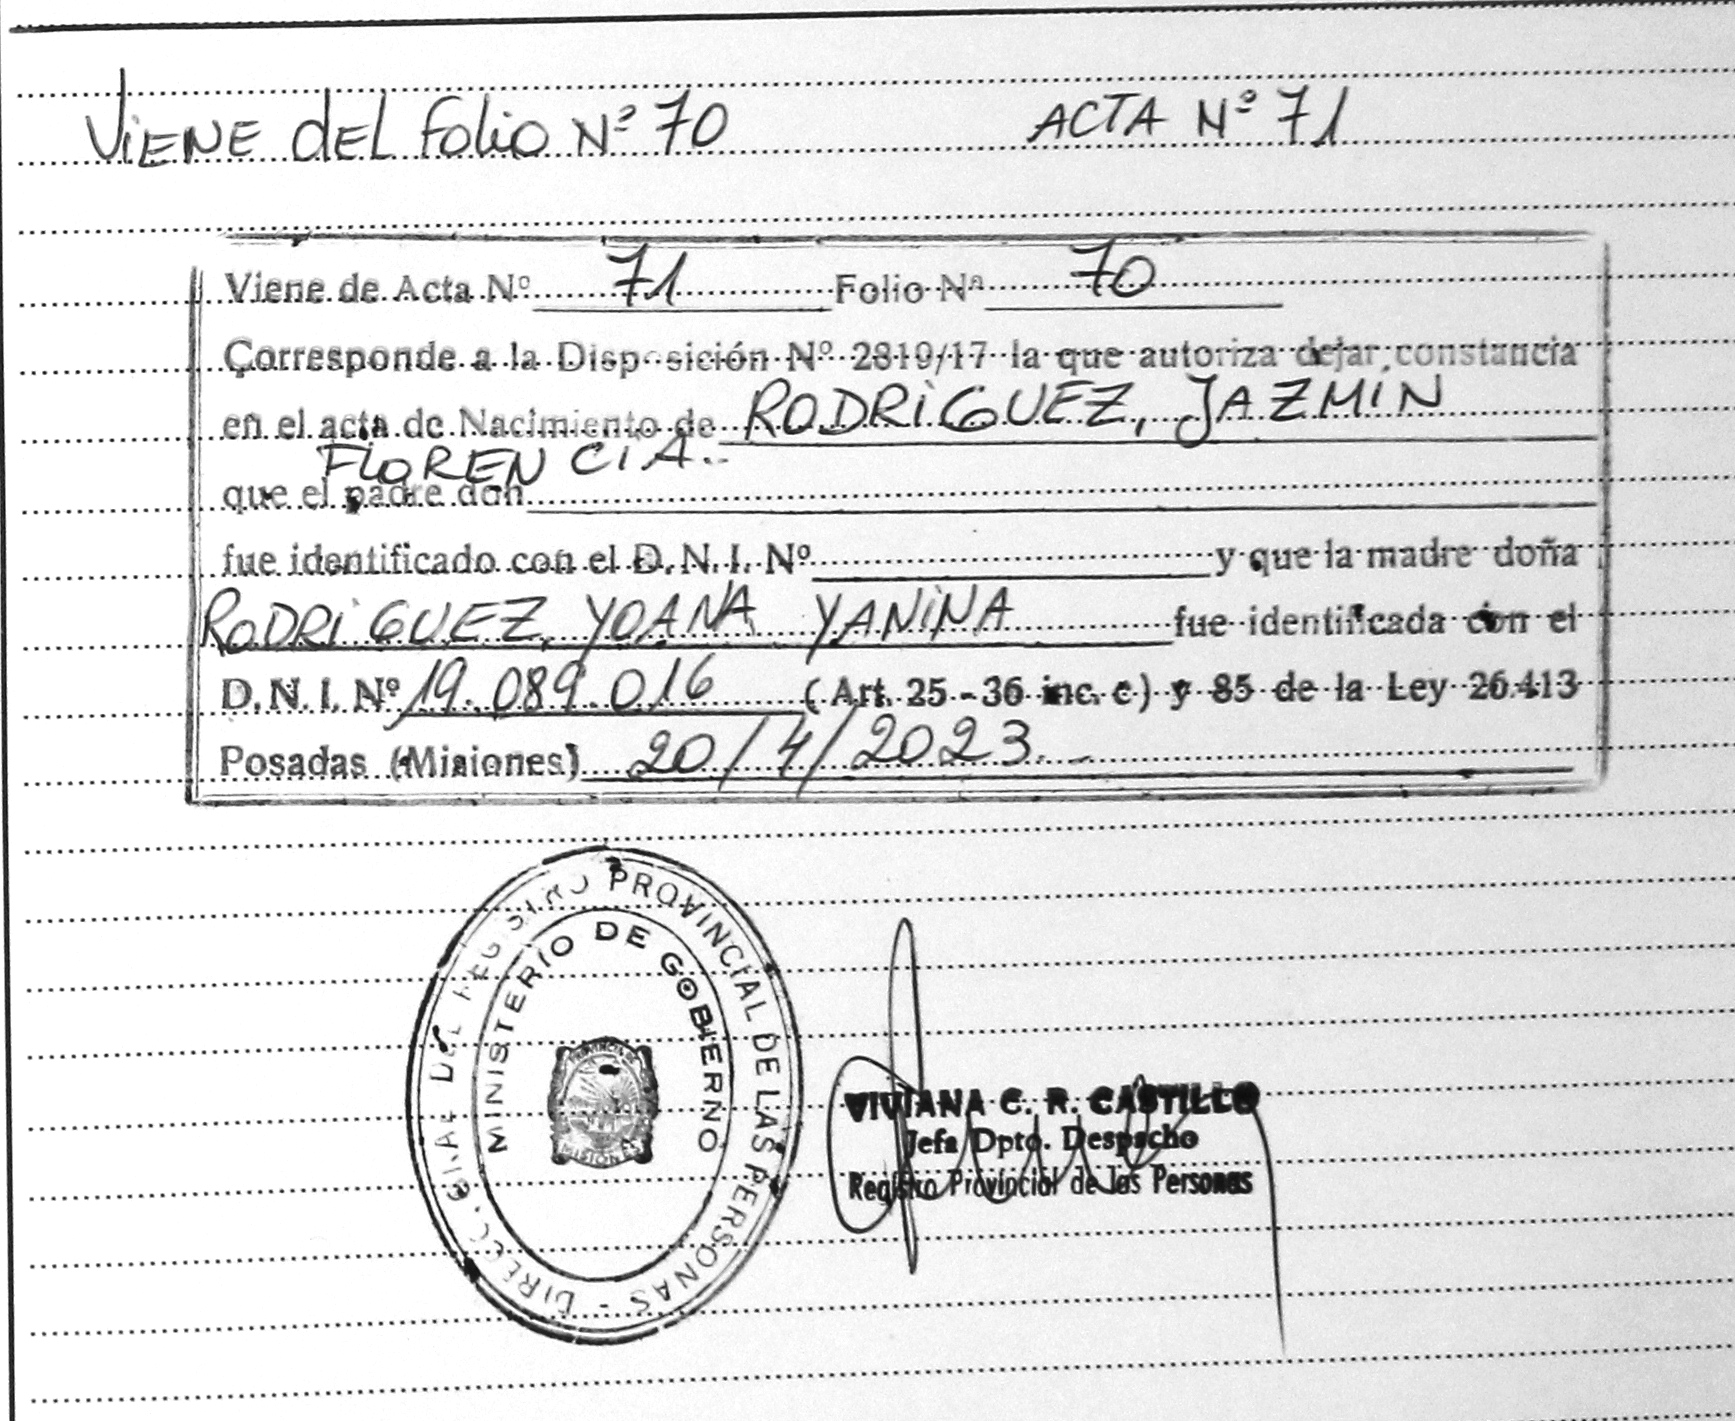 ViENE dEL FoLio Nº 70 ACTA Nº 71
Viene de Acta Nº 71 Folio Nº 70
Corresponde a la Disposición Nº 2819/17 la que autoriza dejar constancia
en el acta de Nacimiento de RODRiGUEZ, JAZMiN
FLORENCiA.-
que el padre don
fue identificado con el D.N.I. Nº y que la madre doña
RODRiGUEZ, YOANA YANiNA fue identificada con el
D.N.I. Nº 19.089.016 (Art. 25 - 36 inc. c) y 85 de la Ley 26.413
Posadas (Misiones) 20/4/2023.-
DIRECC. GRAL DEL REGISTRO PROVINCIAL DE LAS PERSONAS -
MINISTERIO DE GOBIERNO
PROVINCIA DE
MISIONES
VIVIANA C. R. CASTILLO
Jefa Dpto. Despacho
Registro Provincial de las Personas